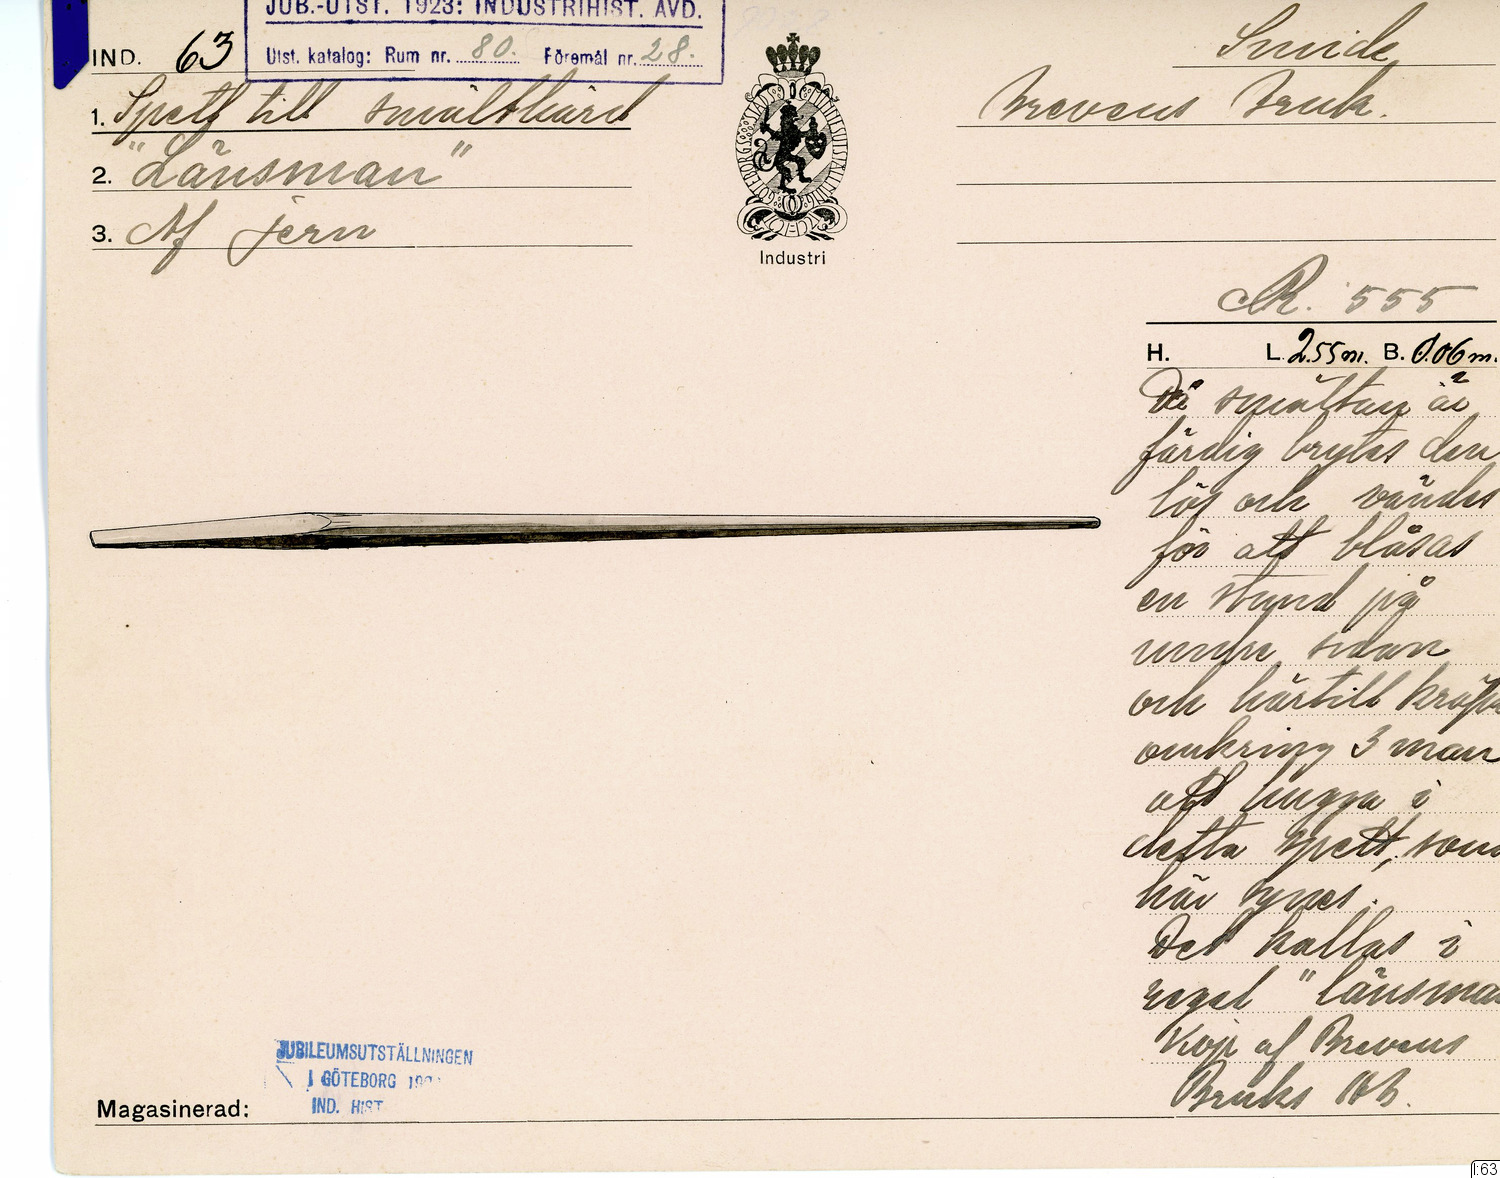 JUB.-UTST. 1923: INDUSTRIHIST. AVD.
Utst. katalog: Rum nr. 80. Föremål nr. 28.
IND. 63
1. Spett till smälthärd
2. "Länsman"
3. Af jern
GÖTEBORGS STADS
Industri
Smide
Brevens Bruk.
R. 555
H. L. 2.55 m. B. 0.06 m.
Då smältan är
färdig brytes den
lös och vändes
för att blåsas
en stund på
undre sidan
och härtill kräfve
omkring 3 man
att hugga i
detta spett, som
här synes.
Det kallas i
regel "länsma
Köp af Brevens
Bruks AB.
JUBILEUMSUTSTÄLLNINGEN
I GÖTEBORG 192
IND. HIST
Magasinerad:
I:63